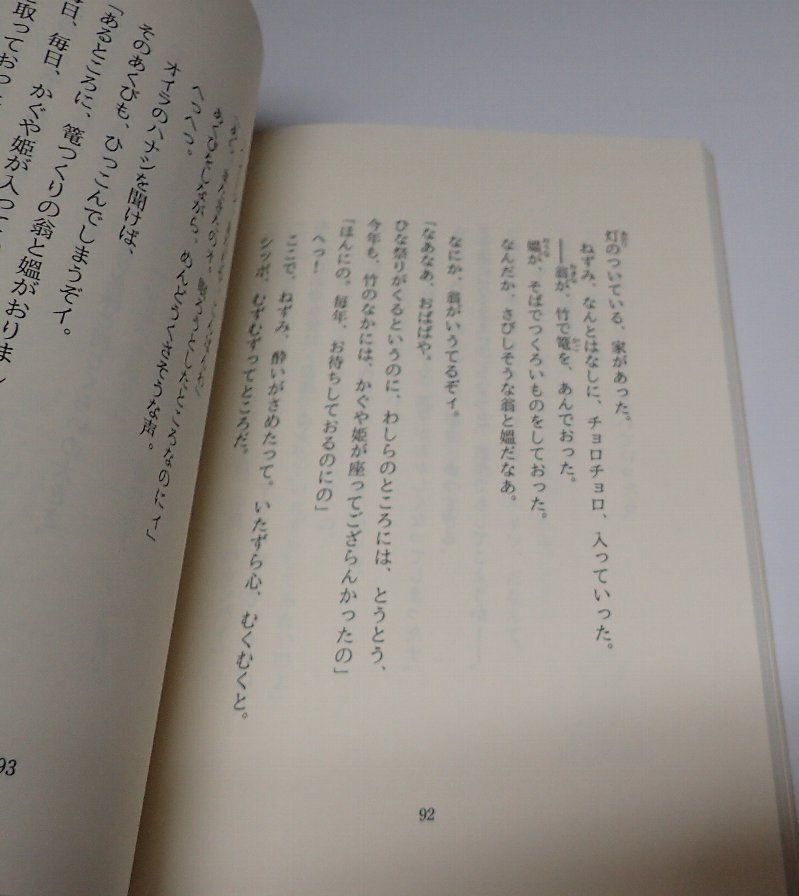 灯のついている、家があった。
ねずみ、なんとはなしに、チョロチョロ、入っていった。
――翁が、竹で篭を、あんでおった。
媼が、そばでつくろいものをしておった。
なんだか、さびしそうな翁と媼だなあ。
なにか、翁がいうてるぞィ。
「なあなあ、おばばや。
ひな祭りがくるというのに、わしらのところには、とうとう、
今年も、竹のなかには、かぐや姫が座ってござらんかったの」
「ほんにの。毎年、お待ちしておるのにの」
へっ！
ここで、ねずみ、酔いがさめたって。いたずら心、むくむくと。
シッポ、むずむずってところだ。
92
ろうとしたところなのにィ」
しながら、めんどうくさそうな声。
へっへっ。
オイラのハナシを聞けば、
そのあくびも、ひっこんでしまうぞィ。
「あるところに、篭つくりの翁と媼がおりまし
日、毎日、かぐや姫が入って
取っておった
93